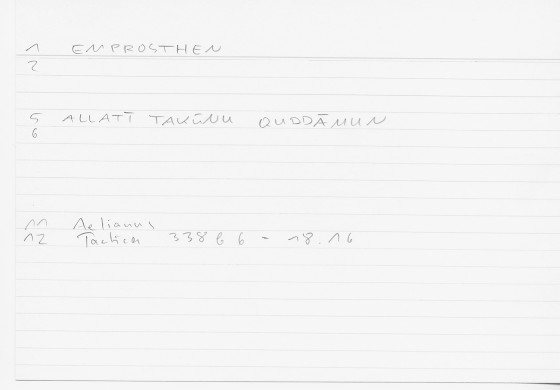 1 EMPROSTHEN
2
5 ALLATĪ TAKŪNU QUDDĀMUN
6
11 Aelianus
12 Tactica 338 b 6 - 18.16